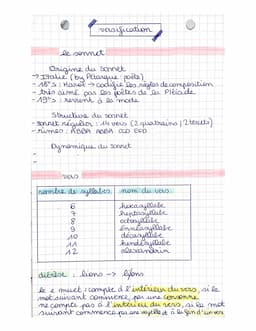 versification
le sonnet
Origine du sonnet
→ Italie (by Pétarque : poète)
- 16°s : Marot → codifie les règles de composition
- très aimé par les poètes de la Pléiade
- 19°s : revient à la mode
Structure du sonnet
- sonnet régulier : 14 vers (2 quatrains / 2 tercets)
- rimes : ABBA ABBA CCD EED
Dynamique du sonnet
-
-
vers
nombre de syllabes nom du vers
6 hexasyllabe
7 heptasyllabe
8 octosyllabe
9 ennéasyllabe
10 décasyllabe
11 hendécasyllabe
12 alexandrin
diérèse : lions → lyons
le e muet : compte à l'intérieur du vers, si le
mot suivant commence par une consonne
ne compte pas à l'intérieur du vers, si le mot
suivant commence par une voyelle et à la fin d'un vers